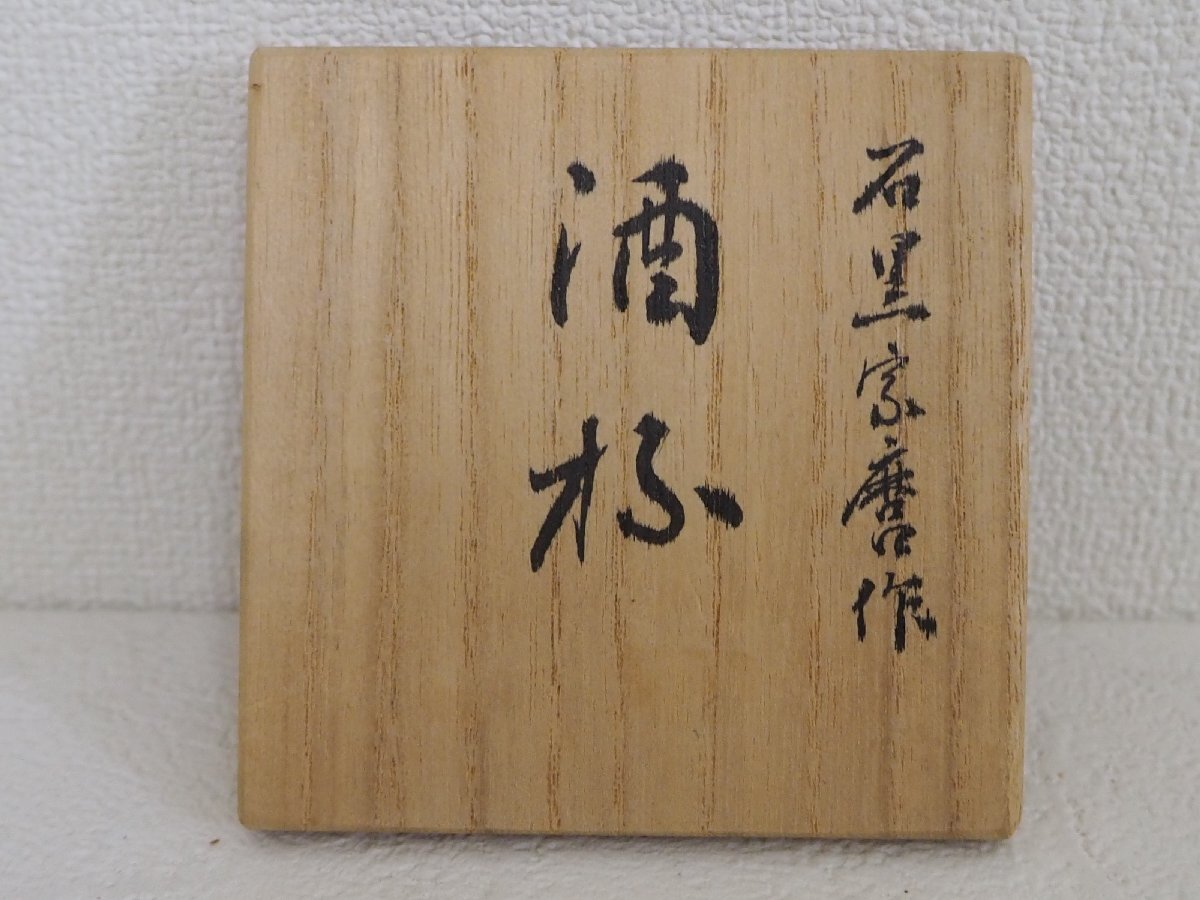 石黒宗麿作
酒杯